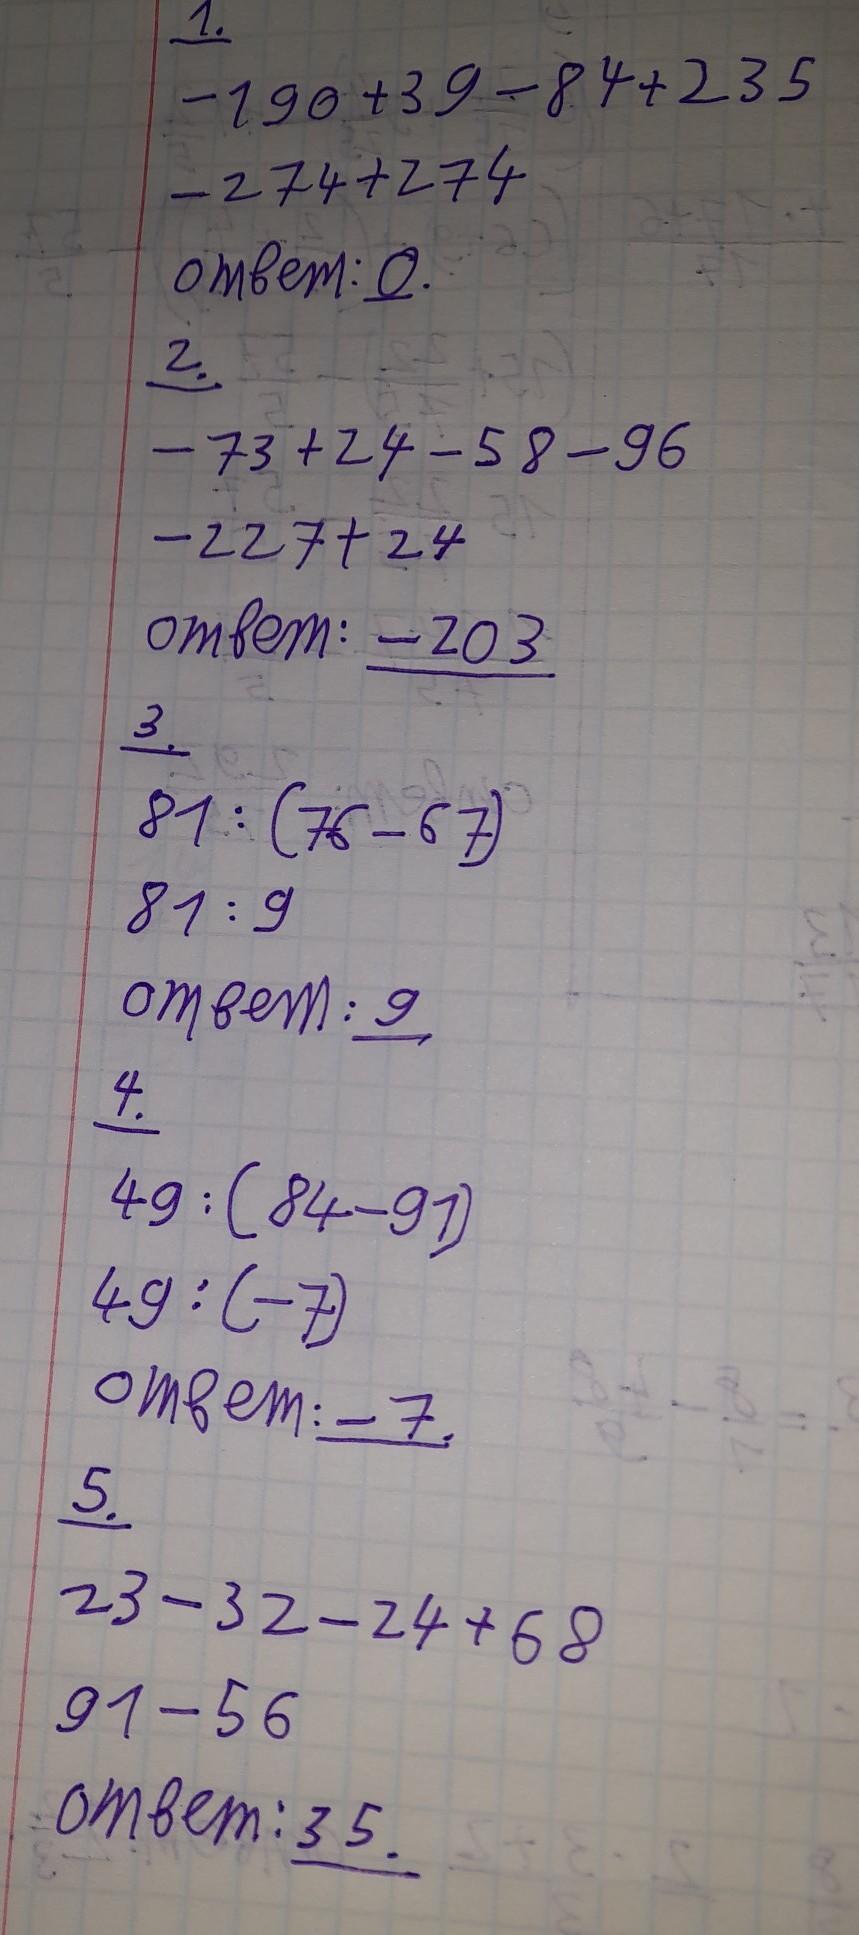 1.
-190+39-84+235
-274+274
ответ: 0.
2.
-73+24-58-96
-227+24
ответ: -203
3.
81:(76-67)
81:9
ответ: 9
4.
49:(84-91)
49:(-7)
ответ: -7.
5.
23-32-24+68
91-56
ответ: 35.